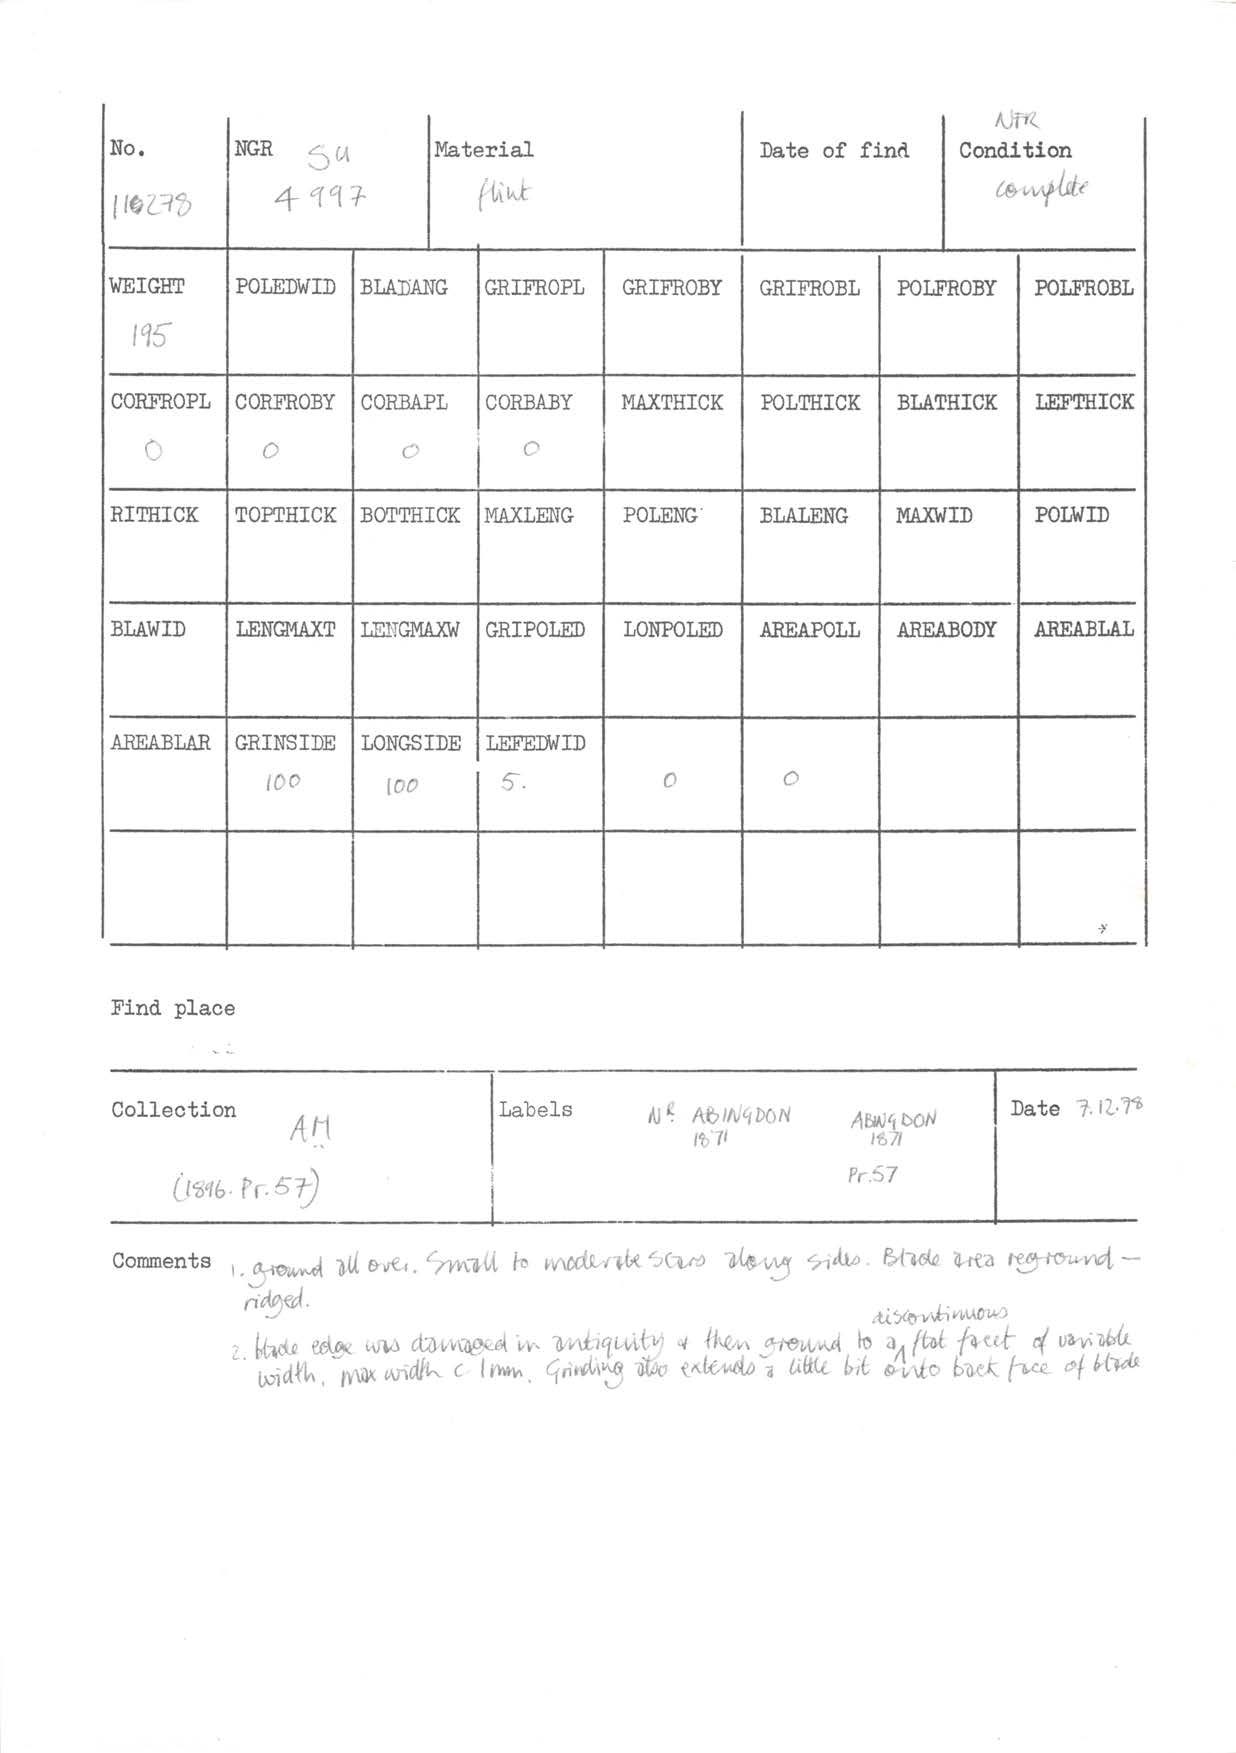 NFR
No. NGR SU Material Date of find Condition
116278 4997 flint complete
WEIGHT POLEDWID BLADANG GRIFROPL GRIFROBY GRIFROBL POLFROBY POLFROBL
195
CORFROPL CORFROBY CORBAPL CORBABY MAXTHICK POLTHICK BLATHICK LEFTHICK
0 0 0 0
RITHICK TOPTHICK BOTTHICK MAXLENG POLENG BLALENG MAXWID POLWID
BLAWID LENGMAXT LENGMAXW GRIPOLED LONPOLED AREAPOLL AREABODY AREABLAL
AREABLAR GRINSIDE LONGSIDE LEFEDWID
100 100 5. 0 0
Find place
Collection AM Labels NR ABINGDON ABINGDON Date 7.12.78
1871 1871
(1896. Pr.57) Pr.57
Comments 1. ground all over. Small to moderate scars along sides. Blade area reground —
ridged.
discontinuous
2. blade edge was damaged in antiquity & then ground to a flat facet of variable
width, max width c. 1mm. Grinding also extends a little bit onto back face of blade